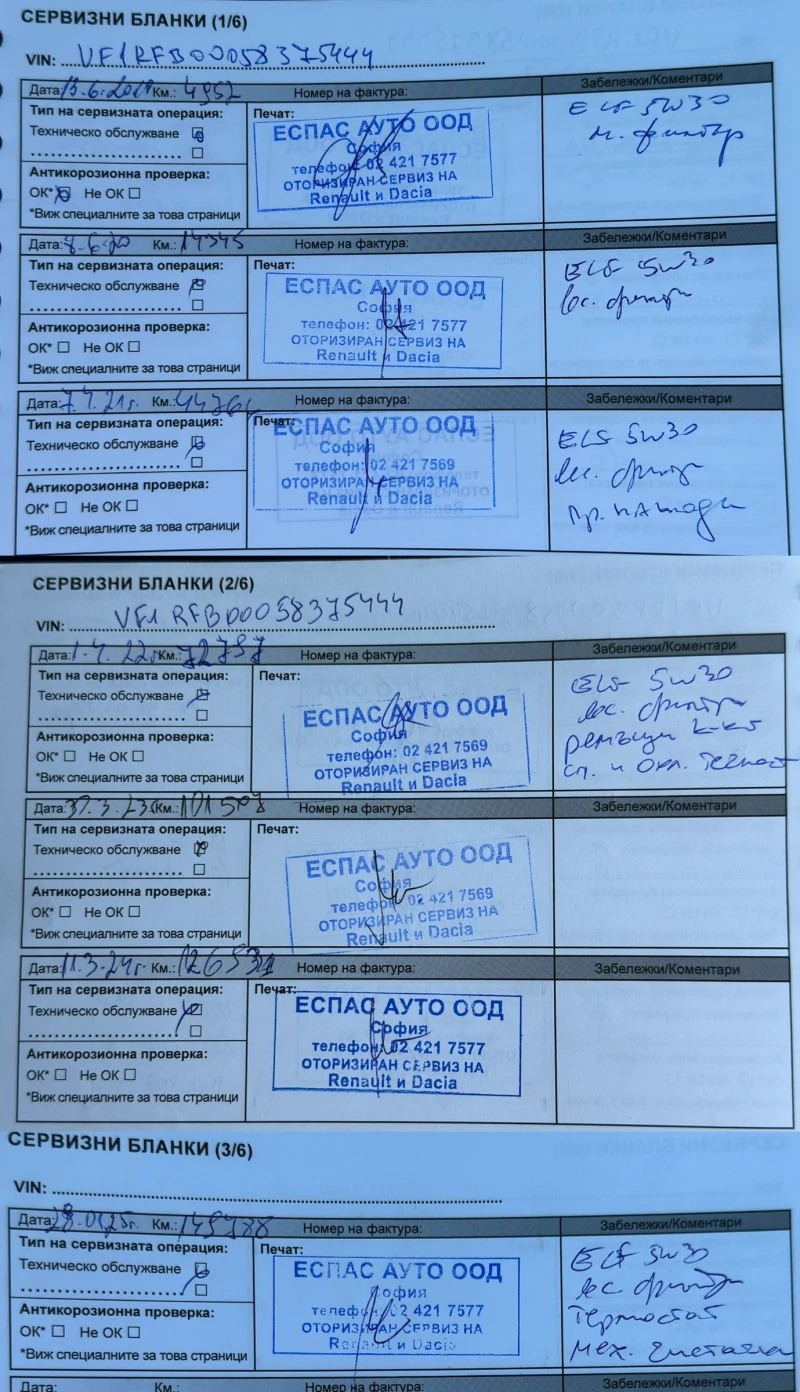 СЕРВИЗНИ БЛАНКИ (1/6)
VIN: VF1RFB00058375444
Дата: Км.: 4952 Номер на фактура: Забележки/Коментари
Тип на сервизната операция: Печат: ELF 5W30
Техническо обслужване ЕСПАС АУТО ООД м. филтър
София
Антикорозионна проверка: телефон: 02 421 7577
ОК* Не ОК ОТОРИЗИРАН СЕРВИЗ НА
*Виж специалните за това страници Renault и Dacia
Дата: 8.6.20 Км.: 14345 Номер на фактура: Забележки/Коментари
Тип на сервизната операция: Печат: ELF 5W30
Техническо обслужване ЕСПАС АУТО ООД вс. филтри
София
Антикорозионна проверка: телефон: 02 421 7577
ОК* Не ОК ОТОРИЗИРАН СЕРВИЗ НА
*Виж специалните за това страници Renault и Dacia
Дата: 7.4.21г. Км.: Номер на фактура: Забележки/Коментари
Тип на сервизната операция: Печат: ELF 5W30
Техническо обслужване ЕСПАС АУТО ООД вс. филтри
София
Антикорозионна проверка: телефон: 02 421 7569
ОК* Не ОК ОТОРИЗИРАН СЕРВИЗ НА
*Виж специалните за това страници Renault и Dacia
СЕРВИЗНИ БЛАНКИ (2/6)
VIN: VF1RFB00058375444
Дата: 1.4.22г. Км.: 72757 Номер на фактура: Забележки/Коментари
Тип на сервизната операция: Печат: ELF 5W30
Техническо обслужване ЕСПАС АУТО ООД вс. филтри
София ремъци
Антикорозионна проверка: телефон: 02 421 7569 сп. и охл. течност
ОК* Не ОК ОТОРИЗИРАН СЕРВИЗ НА
*Виж специалните за това страници Renault и Dacia
Дата: Км.: Номер на фактура: Забележки/Коментари
Тип на сервизната операция: Печат:
Техническо обслужване ЕСПАС АУТО ООД
София
Антикорозионна проверка: телефон: 02 421 7569
ОК* Не ОК ОТОРИЗИРАН СЕРВИЗ НА
*Виж специалните за това страници Renault и Dacia
Дата: 11.3.24г. Км.: Номер на фактура: Забележки/Коментари
Тип на сервизната операция: Печат:
Техническо обслужване ЕСПАС АУТО ООД
София
Антикорозионна проверка: телефон: 02 421 7577
ОК* Не ОК ОТОРИЗИРАН СЕРВИЗ НА
*Виж специалните за това страници Renault и Dacia
СЕРВИЗНИ БЛАНКИ (3/6)
VIN:
Дата: 28.01.25г. Км.: 149788 Номер на фактура: Забележки/Коментари
Тип на сервизната операция: Печат: ELF 5W30
Техническо обслужване ЕСПАС АУТО ООД вс. филтри
София Термостат
Антикорозионна проверка: телефон: 02 421 7577 мех.
ОК* Не ОК ОТОРИЗИРАН СЕРВИЗ НА
*Виж специалните за това страници Renault и Dacia
Дата: Км.: Номер на фактура: Забележки/Коментари